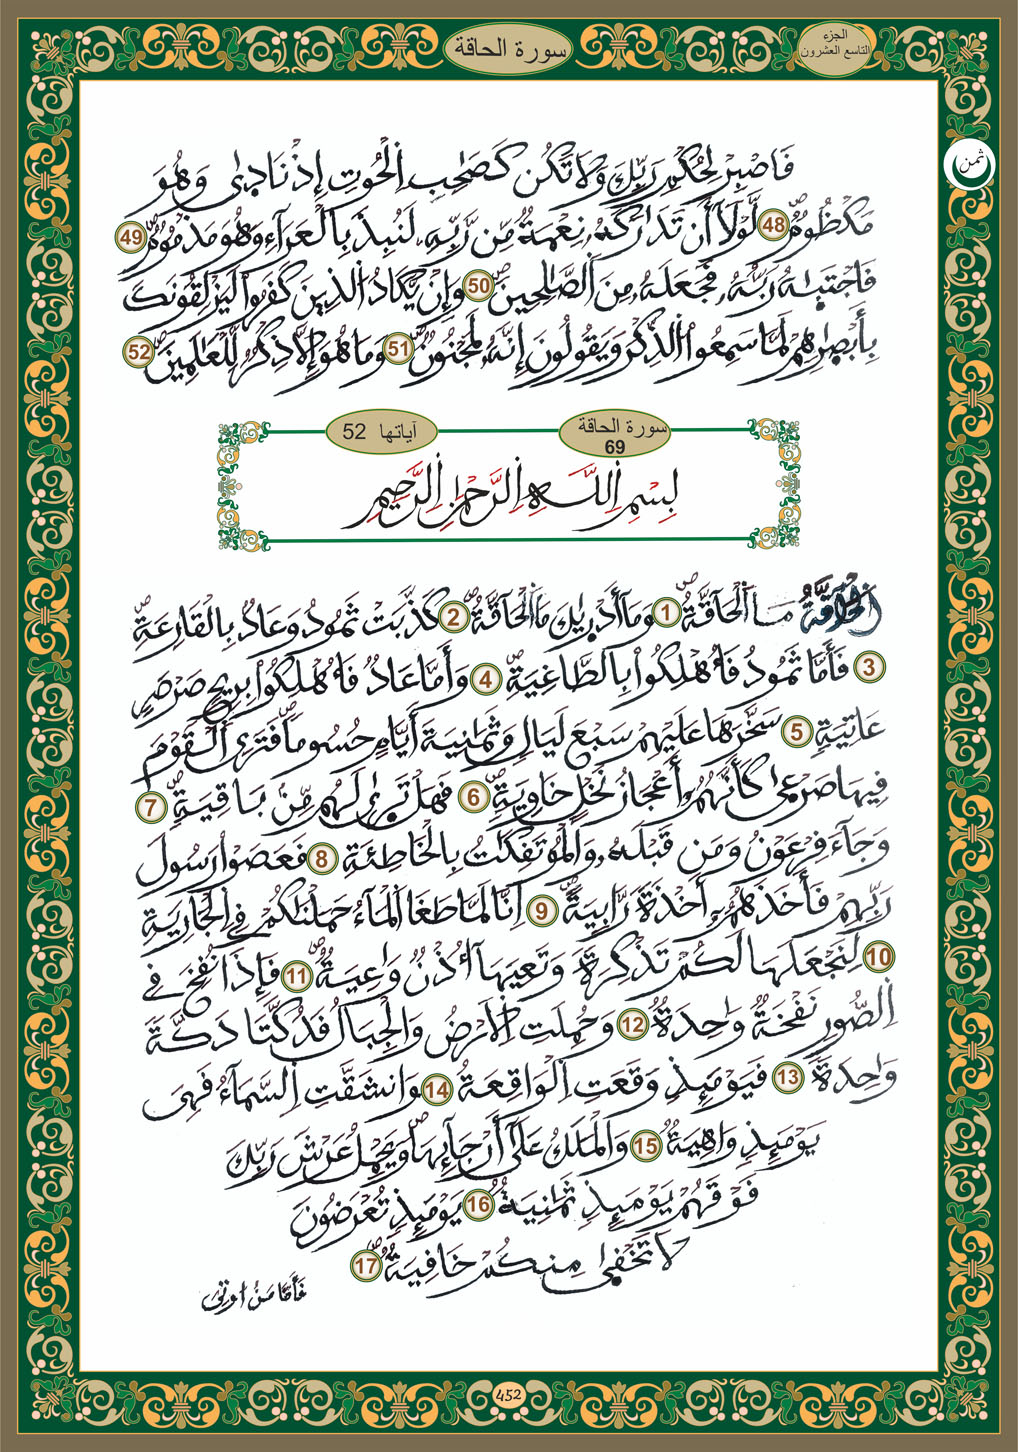 سورة الحاقة
الجزء
التاسع العشرون
ثمن
فَاصْبِرْ لِحُكْمِ رَبِّكَ وَلَا تَكُن كَصَٰحِبِ اِلْحُوتِ إِذْ نَادِىٰ وَهُوَ
مَكْظُومٌ 48 لَّوْلَا أَن تَدَٰرَكَهُۥ نِعْمَةٌ مِّن رَّبِّهِۦ لَنُبِذَ بِالْعَرَآءِ وَهُوَ مَذْمُومٌ 49
فَاجْتَبَٰهُ رَبُّهُۥ فَجَعَلَهُۥ مِنَ اَلصَّٰلِحِينَ 50 وَإِنْ يَّكَادُ اُلذِينَ كَفَرُوا لَيَزْلِقُونَكَ
بِأَبْصَٰرِهِمْ لَمَّا سَمِعُوا اُلذِّكْرَ وَيَقُولُونَ إِنَّهُۥ لَمَجْنُونٌ 51 وَمَا هُوَ إِلَّا ذِكْرٌ لِّلْعَٰلَمِينَ 52
سورة الحاقة
69
آياتها 52
بِسْمِ اِللَّهِ اِلرَّحْمَٰنِ اِلرَّحِيمِ
اَلْحَآقَّةُ مَا اَلْحَآقَّةُ 1 وَمَا أَدْرِىٰكَ مَا اَلْحَآقَّةُ 2 كَذَّبَتْ ثَمُودُ وَعَادُ بِالْقَارِعَةِ
3 فَأَمَّا ثَمُودُ فَأُهْلِكُوا بِالطَّاغِيَةِ 4 وَأَمَّا عَادٌ فَأُهْلِكُوا بِرِيحٍ صَرْصَرٍ
عَاتِيَةٍ 5 سَخَّرَهَا عَلَيْهِمْ سَبْعَ لَيَالٍ وَثَمَٰنِيَةَ أَيَّامٍ حُسُوماً فَتَرَى اَلْقَوْمَ
فِيهَا صَرْعِىٰ كَأَنَّهُمُۥ أَعْجَازُ نَخْلٍ خَاوِيَةٍ 6 فَهَلْ تَرِىٰ لَهُم مِّنۢ بَاقِيَةٍ 7
وَجَآءَ فِرْعَوْنُ وَمَن قَبْلَهُۥ وَالْمُوتَفِكَٰتُ بِالْخَاطِئَةِ 8 فَعَصَوْا رَسُولَ
رَبِّهِمْ فَأَخَذَهُمُۥ أَخْذَةً رَّابِيَةً 9 اِنَّا لَمَّا طَغَا اَلْمَآءُ حَمَلْنَٰكُمْ فِى اِلْجَارِيَةِ
10 لِنَجْعَلَهَا لَكُمْ تَذْكِرَةً وَتَعِيَهَا أُذْنٌ وَٰعِيَةٌ 11 فَإِذَا نُفِخَ فِى
اِلصُّورِ نَفْخَةٌ وَٰحِدَةٌ 12 وَحُمِلَتِ اِلَارْضُ وَالْجِبَالُ فَدُكَّتَا دَكَّةً
وَٰحِدَةً 13 فَيَوْمَئِذٍ وَقَعَتِ اِلْوَاقِعَةُ 14 وَانشَقَّتِ اِلسَّمَآءُ فَهِىَ
يَوْمَئِذٍ وَاهِيَةٌ 15 وَالْمَلَكُ عَلَىٰ أَرْجَآئِهَا وَيَحْمِلُ عَرْشَ رَبِّكَ
فَوْقَهُمْ يَوْمَئِذٍ ثَمَٰنِيَةٌ 16 يَوْمَئِذٍ تُعْرَضُونَ
لَا تَخْفِىٰ مِنكُمْ خَافِيَةٌ 17
فَأَمَّا مَنُ اوتِىَ
452